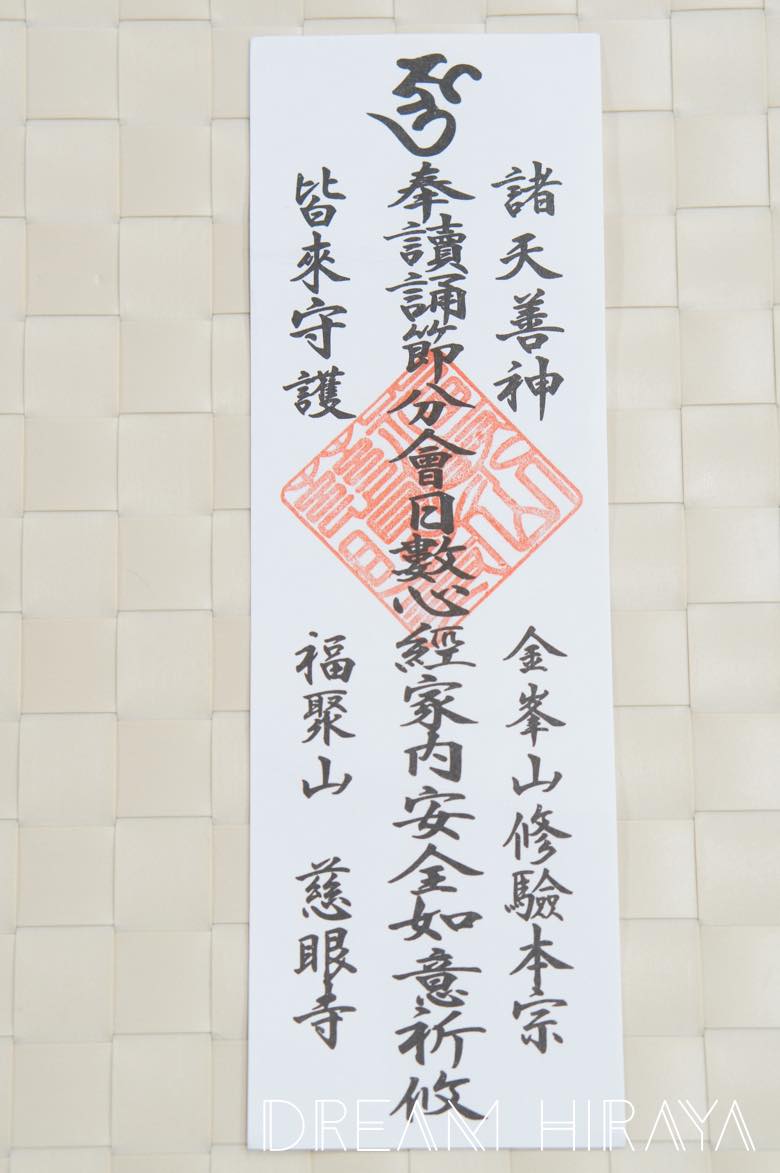 諸天善神
金峯山修驗本宗
奉讀誦節分會日數心經家内安全如意祈攸
皆來守護
福聚山 慈眼寺
DREAM HIRAYA